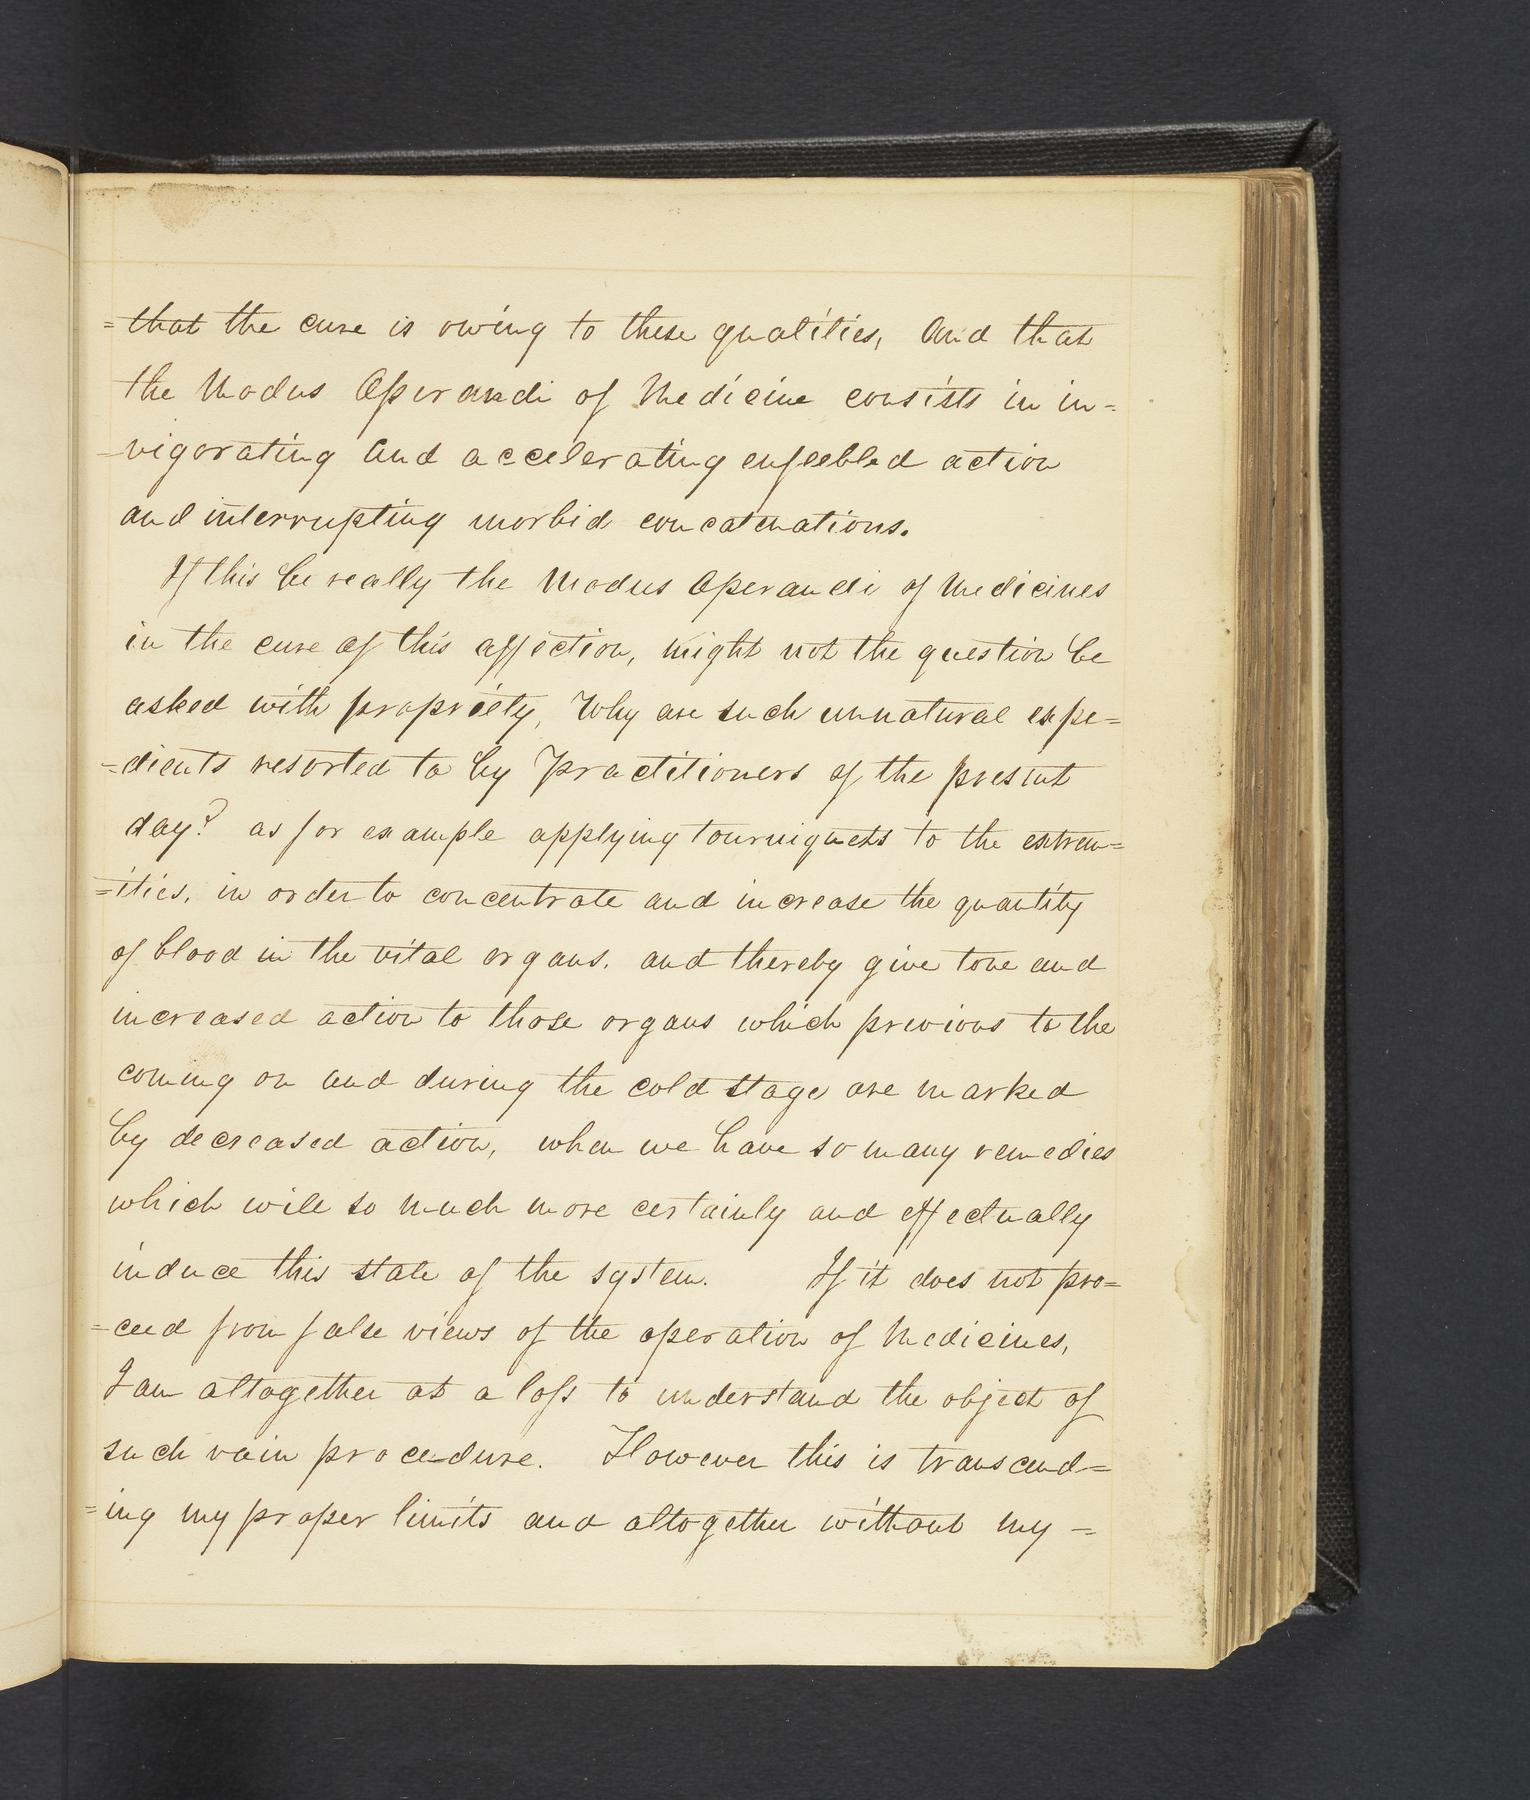 =that the cure is owing to these qualities, And that
the Modus Operandi of Medicine consists in in=
=vigorating And accelerating enfeebled action
and interrupting morbid concatenations.
If this be really the Modus Operandi of Medicines
in the cure of this affection, might not the question be
asked with propriety, Why are such unnatural expe=
=dients resorted to by Practitioners of the present
day? as for example applying tourniquets to the extrem=
=ities, in order to concentrate and increase the quantity
of blood in the vital organs, and thereby give tone and
increased action to those organs which previous to the
coming on and during the cold stage are marked
by decreased action, when we have so many remedies
which will so much more certainly and effectually
induce this state of the system. If it does not pro=
=ceed from false views of the operation of Medicines,
I am altogether at a loss to understand the object of
such vain procedure. However this is transcend=
=ing my proper limits and altogether without my =